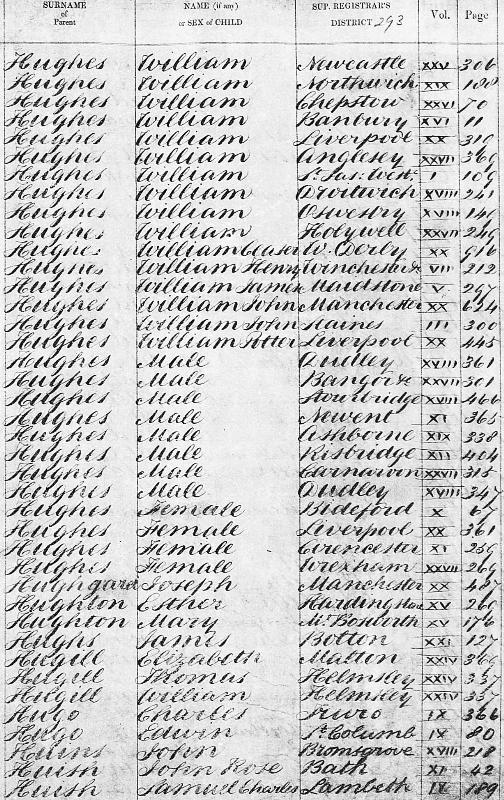 SURNAME of Parent NAME (if any) or SEX of CHILD SUP. REGISTRAR'S DISTRICT 293 Vol. Page
Hughes William Newcastle XXV 306
Hughes William Northwich XIX 188
Hughes William Chepstow XXVI 70
Hughes William Banbury XVI 11
Hughes William Liverpool XX 310
Hughes William Anglesey XXVII 366
Hughes William St Jas. West. I 109
Hughes William Droitwich XVIII 241
Hughes William Oswestry XVIII 140
Hughes William Holywell XXVII 246
Hughes William W. Derby XX 916
Hughes William Henry Winchester VII 212
Hughes William James Maidstone V 297
Hughes William John Manchester XX 624
Hughes William John Staines III 300
Hughes William Potter Liverpool XX 445
Hughes Male Dudley XVIII 361
Hughes Male Bangor &c XXVII 301
Hughes Male Stourbridge XVIII 466
Hughes Male Newent XI 365
Hughes Male Ashborne XIX 338
Hughes Male Risbridge XII 404
Hughes Male Carnarvon XXVII 315
Hughes Male Dudley XVIII 347
Hughes Female Bideford X 67
Hughes Female Liverpool XX 361
Hughes Female Cirencester XI 250
Hughes Female Wrexham XXVII 269
Hughgard Joseph Manchester XX 487
Hughton Esther Hardingstone XV 260
Hughton Mary Mt Bosworth XV 176
Hughs James Botton XXI 127
Hugill Elizabeth Malton XXIV 366
Hugill Thomas Helmsley XXIV 337
Hugill William Helmsley XXIV 337
Hugo Charles Truro IX 366
Hugo Edwin St Columb IX 80
Huins John Bromsgrove XVIII 218
Huish John Rose Bath XI 42
Huish Samuel Charles Lambeth IV 189